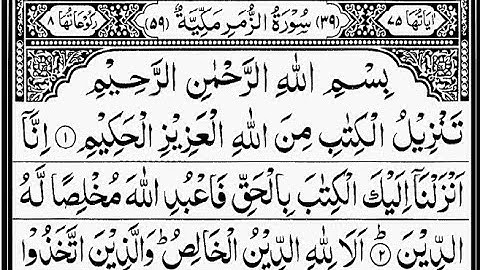 اٰيَاتُهَا ٧٥ (٣٩) سُوْرَةُ الزُّمَرِ مَكِّيَّةٌ (٥٩) رُكُوْعَاتُهَا ٨
بِسْمِ اللهِ الرَّحْمٰنِ الرَّحِيْمِ
تَنْزِيْلُ الْكِتٰبِ مِنَ اللهِ الْعَزِيْزِ الْحَكِيْمِ ① اِنَّاۤ
اَنْزَلْنَاۤ اِلَيْكَ الْكِتٰبَ بِالْحَقِّ فَاعْبُدِ اللهَ مُخْلِصًا لَّهُ
الدِّيْنَ ② اَلَا لِلّٰهِ الدِّيْنُ الْخَالِصُ ؕ وَالَّذِيْنَ اتَّخَذُوْا